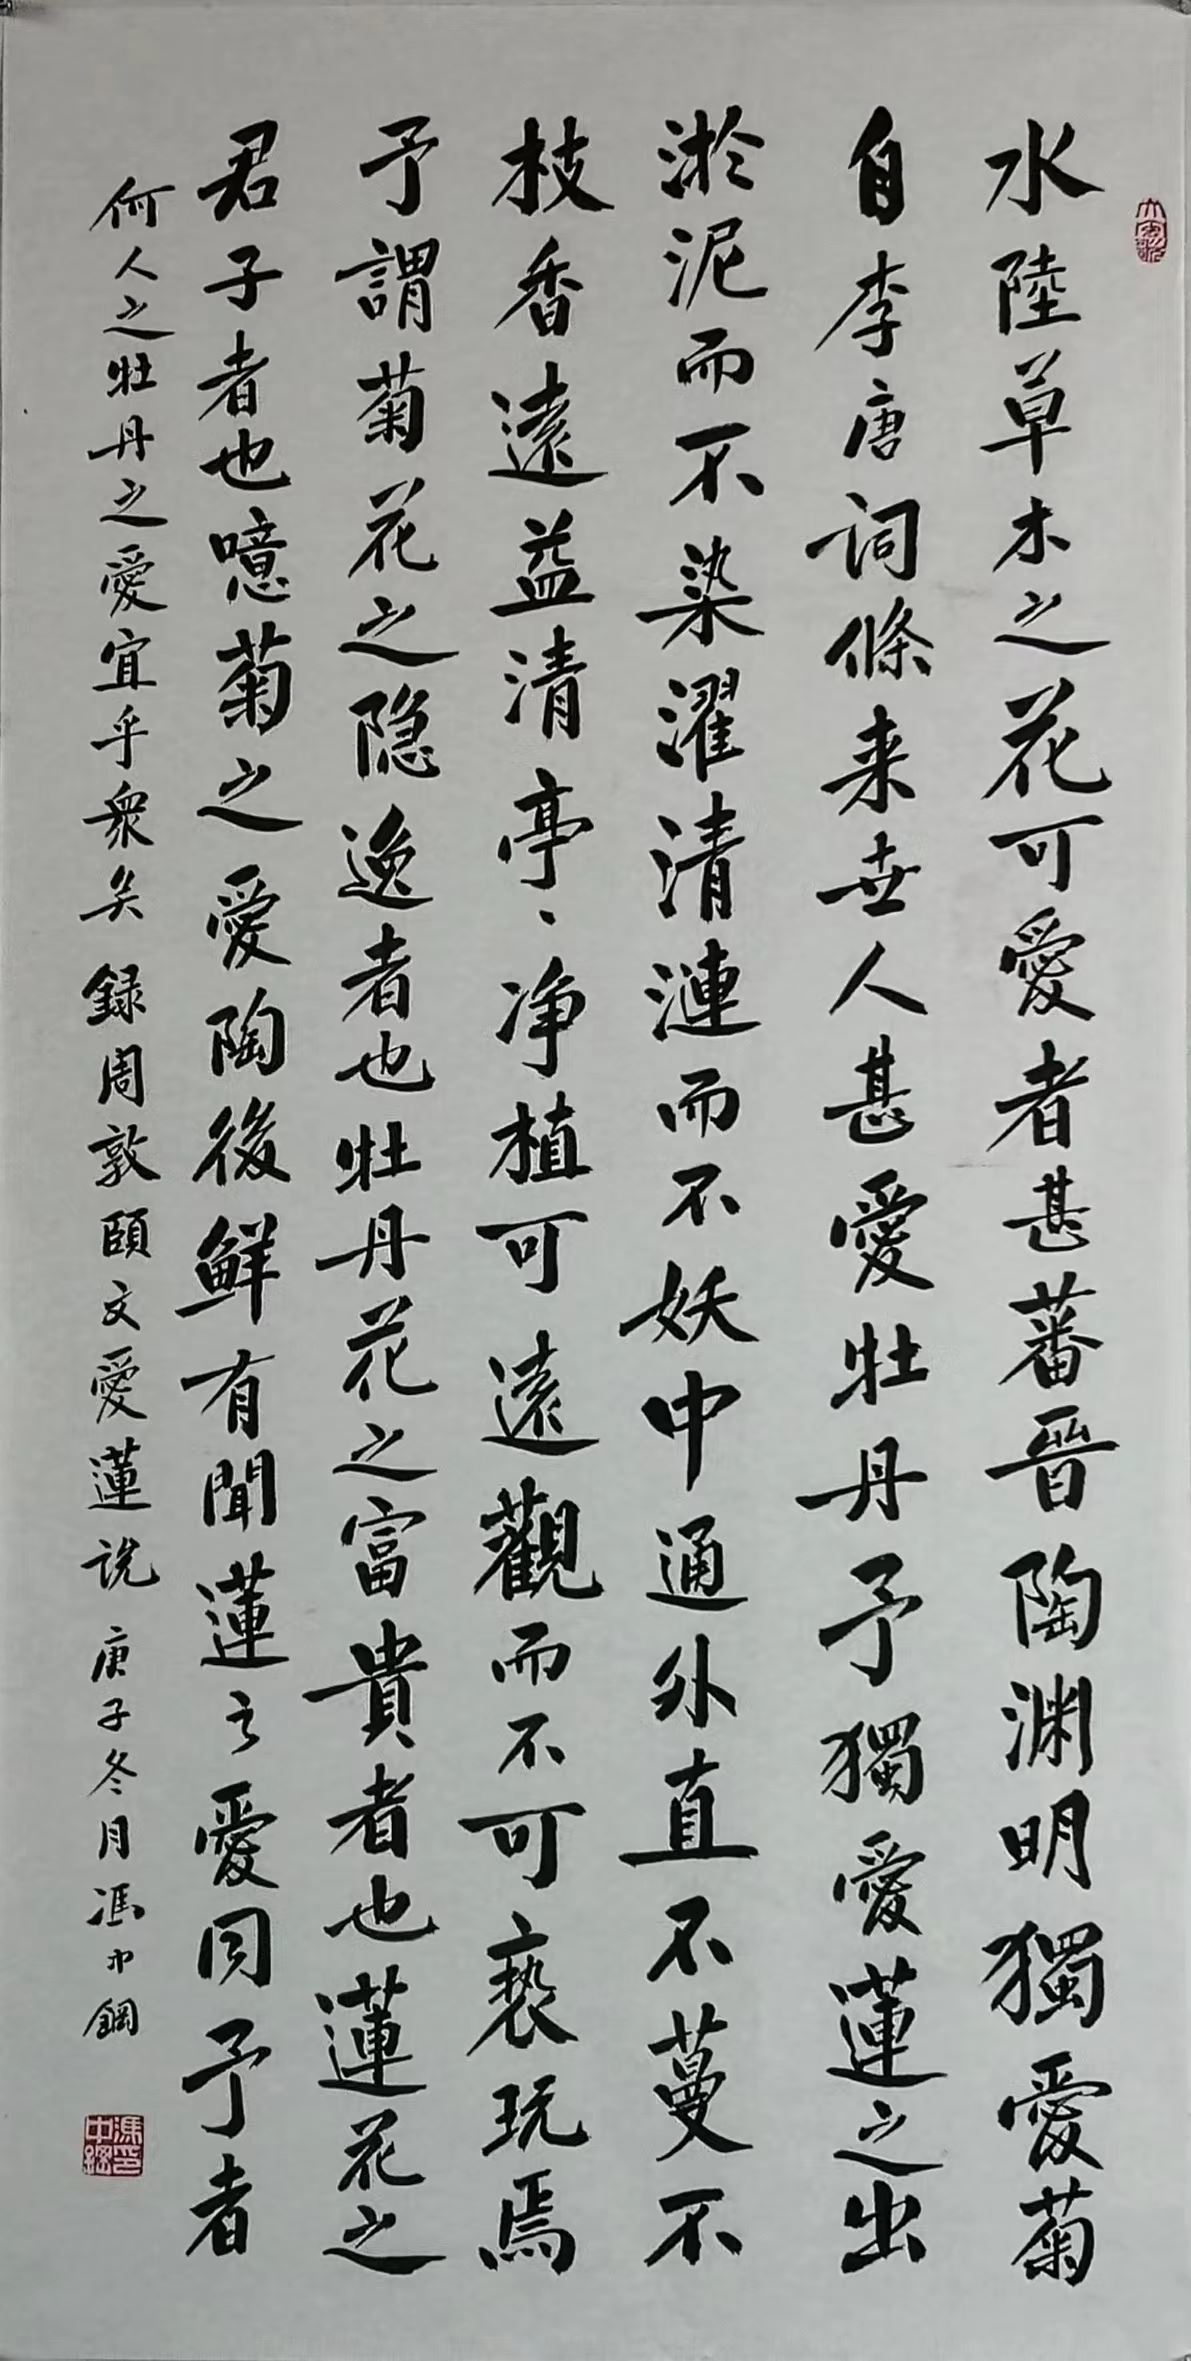 水陸草木之花可愛者甚蕃晉陶渊明獨愛菊
自李唐詞條来世人甚愛牡丹予獨愛蓮之出
淤泥而不染濯清漣而不妖中通外直不蔓不
枝香遠益清亭、净植可遠觀而不可褻玩焉
予謂菊花之隐逸者也牡丹花之富貴者也蓮花之
君子者也噫菊之愛陶後鮮有聞蓮之愛同予者
何人之牡丹之愛宜乎衆矣 録周敦頤文愛蓮説 庚子冬月馮中鋼
馮印中鋼